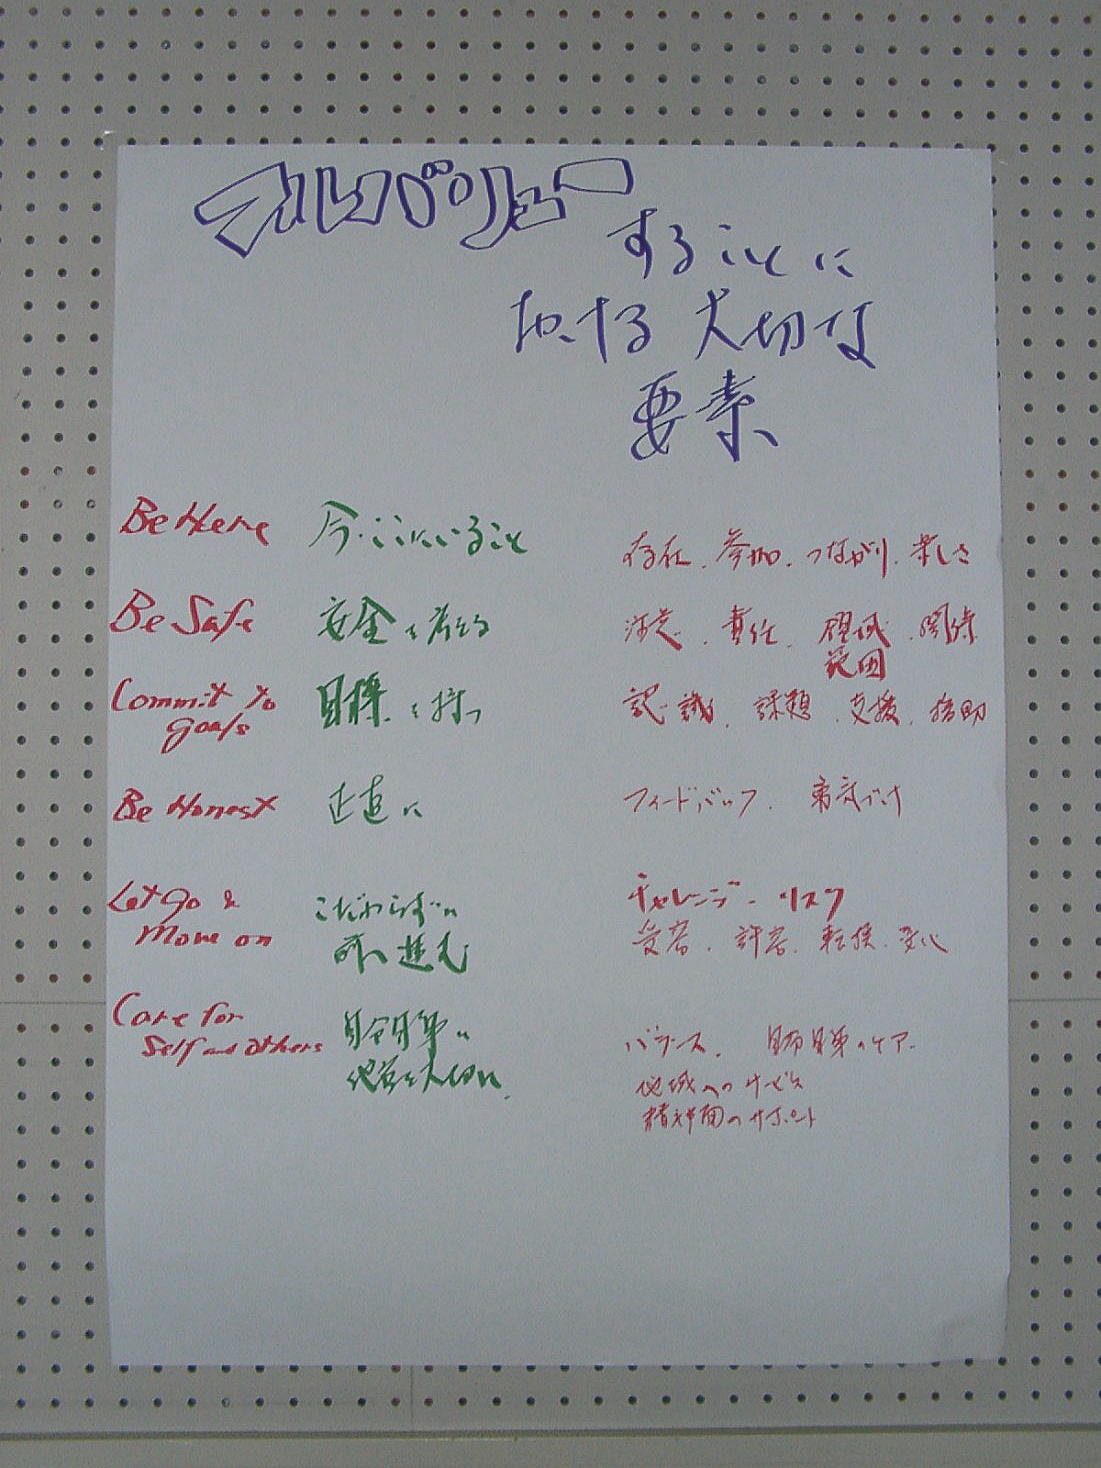 フルバリュー
することに
対する大切な
要素
Be Here 今、ここにいること 存在、参加、つながり、楽しさ
Be Safe 安全を考える 注意、責任、領域、関係
範囲
Commit to 目標を持つ 認識、課題、支援、援助
goals
Be Honest 正直に フィードバック、勇気づけ
Let go & こだわらずに チャレンジ・リスク
Move on 前へ進む 受容、許容、転換、変化
Care for 自分自身と バランス、自分自身のケア
Self and others 他者を大切に 地域へのサービス
精神面のサポート